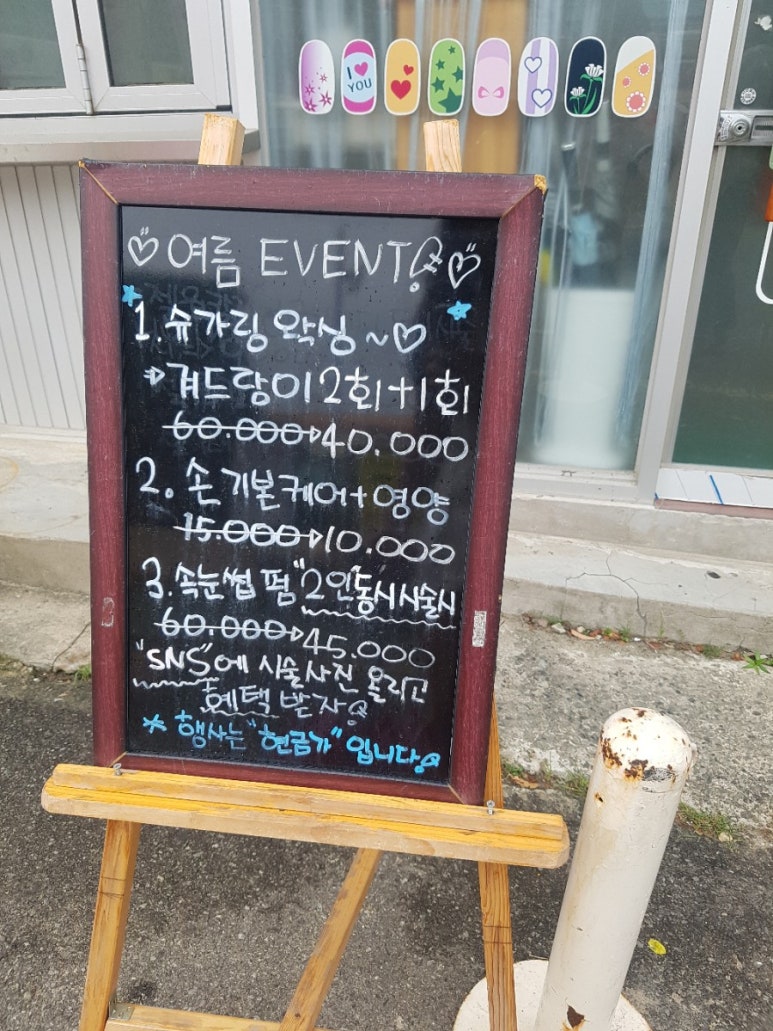 I ♥ YOU
♡ 여름 EVENT! ♡
1. 슈가링 왁싱 ~♡
→ 겨드랑이 2회+1회
60.000→40.000
2. 손 기본케어+영양
15.000→10.000
3. 속눈썹 펌 "2인동시시술시
60.000→45.000
"SNS"에 시술사진 올리고
혜택받자!
* 행사는 "현금가" 입니다!